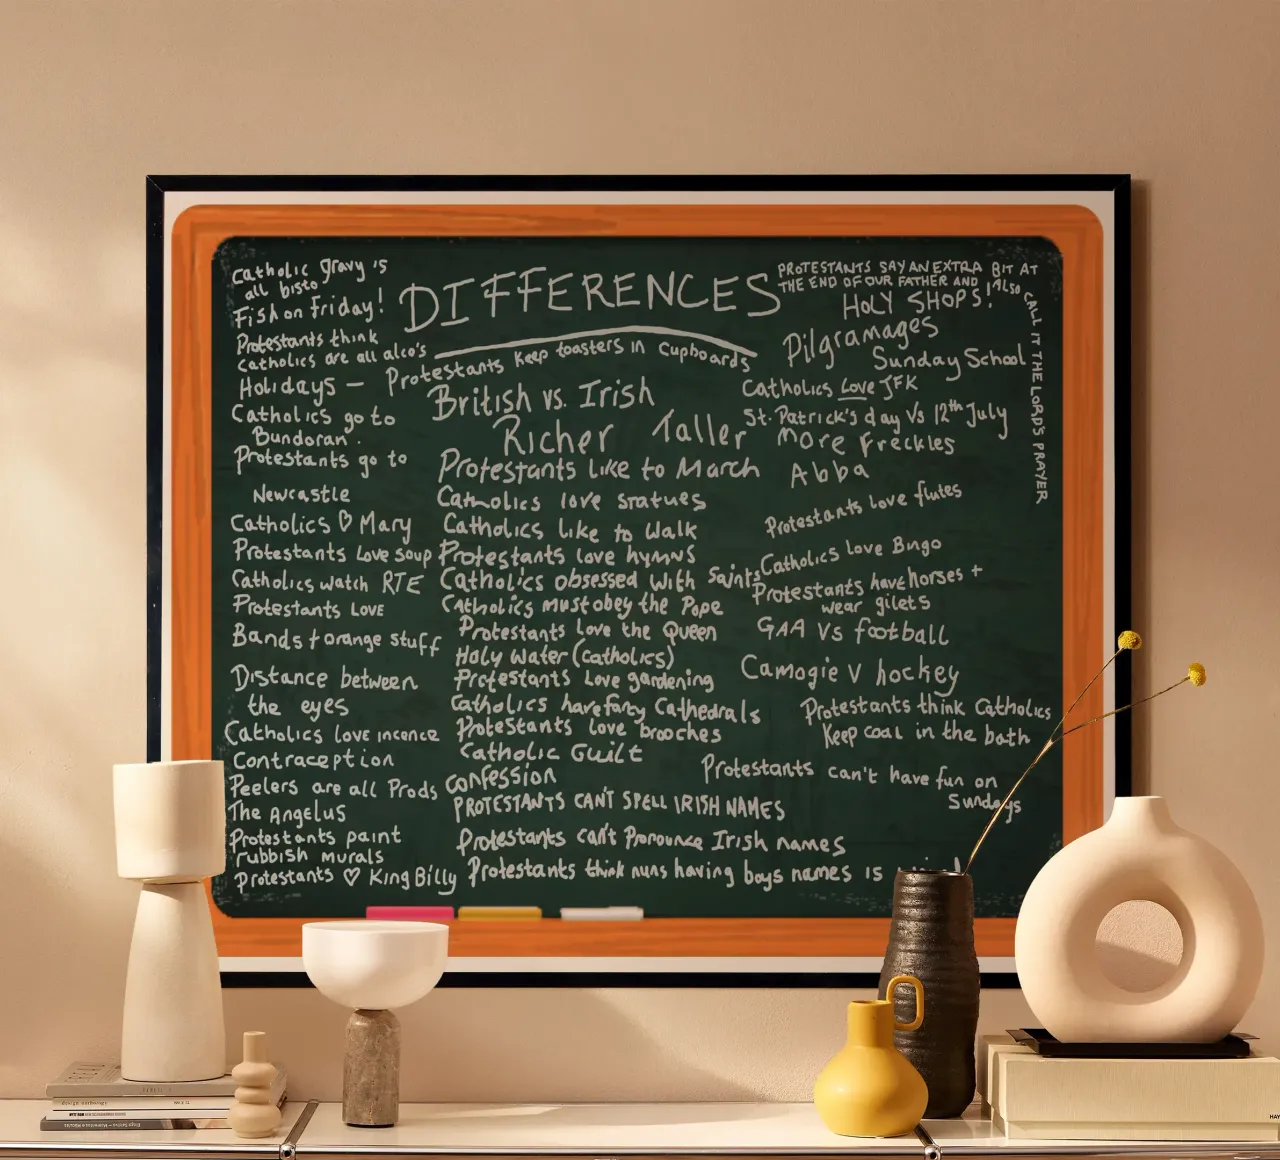 DIFFERENCES
Catholic gravy is
all bisto
Fish on Friday!
Protestants think
Catholics are all alco's
Holidays –
Catholics go to
Bundoran.
Protestants go to
Newcastle
Catholics ♡ Mary
Protestants Love soup
Catholics watch RTE
Protestants LOVE
Bands + orange stuff
Distance between
the eyes
Catholics love incence
Contraception
Peelers are all Prods
The Angelus
Protestants paint
rubbish murals
Protestants ♡ King Billy
Protestants keep toasters in cupboards
British vs. Irish
Richer Taller
Protestants like to March
Catholics love statues
Catholics like to walk
Protestants love hymns
Catholics obsessed with saints
Catholics must obey the Pope
Protestants love the Queen
Holy water (Catholics)
Protestants Love gardening
Catholics have fancy Cathedrals
Protestants love brooches
Catholic Guilt
confession
PROTESTANTS CAN'T SPELL IRISH NAMES
Protestants can't Pronounce Irish names
Protestants think nuns having boys names is
PROTESTANTS SAY AN EXTRA BIT AT
THE END OF OUR FATHER AND ALSO
CALL IT THE LORDS PRAYER
HOLY SHOPS!
Pilgramages
Sunday School
Catholics Love JFK
St. Patrick's day Vs 12th July
More Freckles
Abba
Protestants love flutes
Catholics love Bingo
Protestants have horses +
wear gilets
GAA Vs football
Camogie V hockey
Protestants think Catholics
keep coal in the bath
Protestants can't have fun on
Sundays
HAY